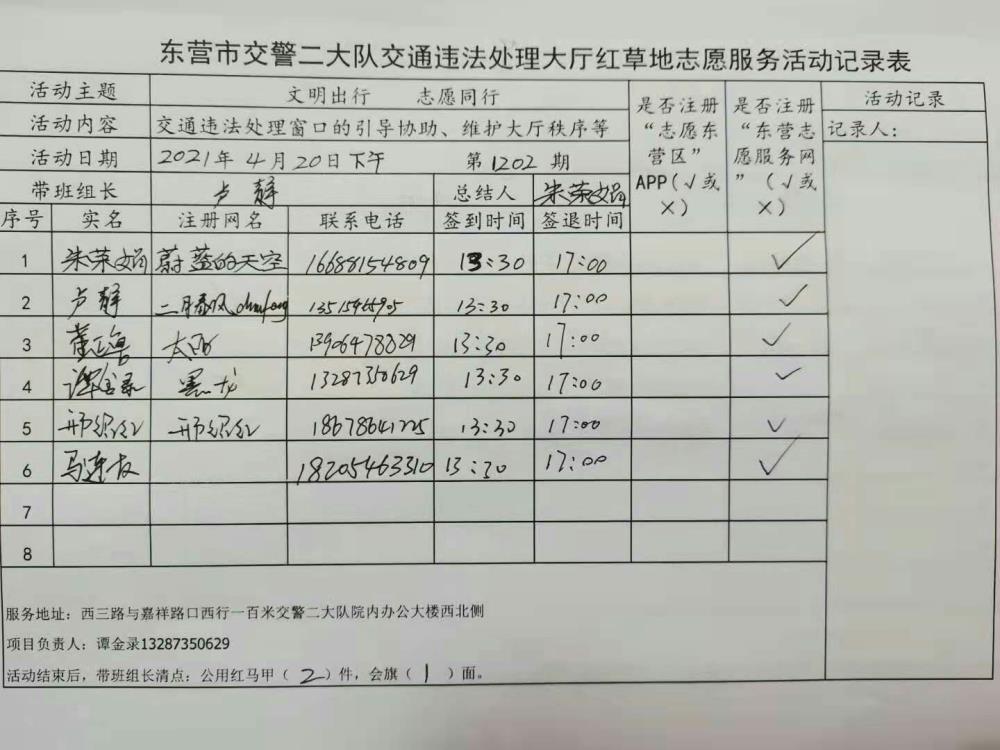 东营市交警二大队交通违法处理大厅红草地志愿服务活动记录表
活动主题 文明出行 志愿同行 是否注册“志愿东营区”APP(√或×) 是否注册“东营志愿服务网”(√或×) 活动记录
活动内容 交通违法处理窗口的引导协助、维护大厅秩序等 记录人:
活动日期 2021年4月20日下午 第1202期
带班组长 卢静 总结人 朱荣娟
序号 实名 注册网名 联系电话 签到时间 签退时间
1 朱荣娟 蔚蓝的天空 16688154809 13:30 17:00 ✓
2 卢静 二月春风 13:30 17:00 ✓
3 太阳 13906478829 13:30 17:00 ✓
4 谭金录 黑龙 13287350629 13:30 17:00 ✓
5 邢绍红 邢绍红 18678641225 13:30 17:00 ✓
6 马连友 18205463310 13:30 17:00 ✓
7
8
服务地址：西三路与嘉祥路口西行一百米交警二大队院内办公大楼西北侧
项目负责人：谭金录13287350629
活动结束后，带班组长清点：公用红马甲（2）件，会旗（1）面。